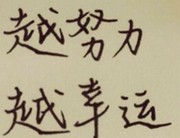 越努力
越幸运